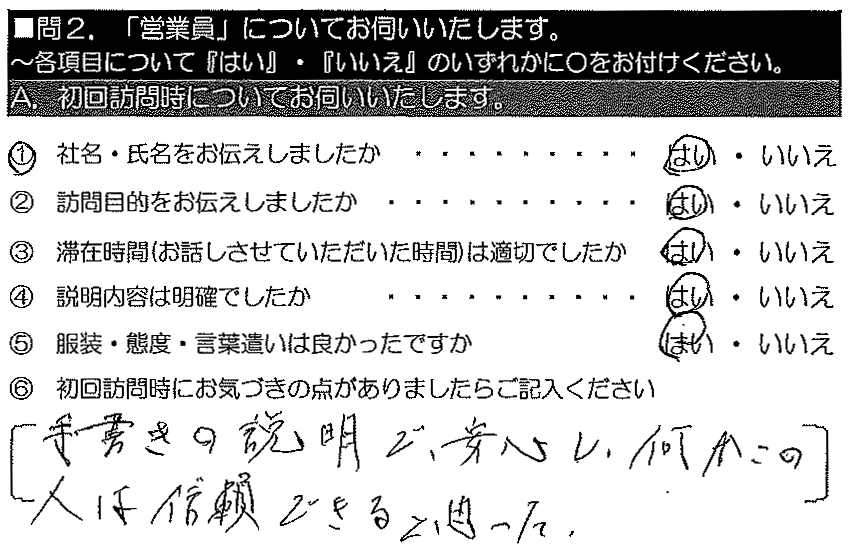 ■問2．「営業員」についてお伺いいたします。
～各項目について『はい』・『いいえ』のいずれかに○をお付けください。
A．初回訪問時についてお伺いいたします。
① 社名・氏名をお伝えしましたか ・・・・・・・・・・ はい ・ いいえ
② 訪問目的をお伝えしましたか ・・・・・・・・・・・ はい ・ いいえ
③ 滞在時間(お話しさせていただいた時間)は適切でしたか はい ・ いいえ
④ 説明内容は明確でしたか ・・・・・・・・・・・ はい ・ いいえ
⑤ 服装・態度・言葉遣いは良かったですか はい ・ いいえ
⑥ 初回訪問時にお気づきの点がありましたらご記入ください
手書きの説明で、安心し、何かこの
人は信頼できると思った。